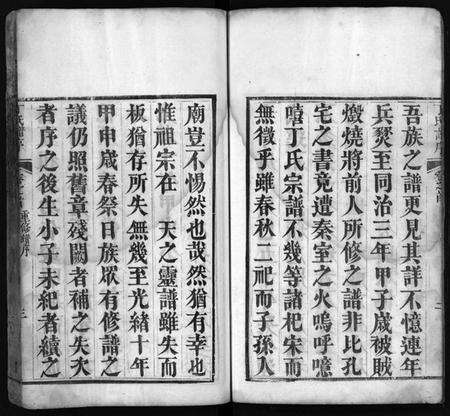 吾族之譜更見其詳不憶連年
兵燹至同治三年甲子歲被賊
燬燒將前人所修之譜非比孔
宅之書竟遭秦室之火嗚呼噫
嘻丁氏宗譜不幾等諸杞宋而
無徵乎雖春秋二祀而子孫入
二
廟豈不惕然也哉然猶有幸也
惟祖宗在 天之靈譜雖失而
板猶存所失無幾至光緒十年
甲申歲春祭日族眾有修譜之
議仍照舊章殘闕者補之失次
者序之後生小子未紀者續之
三